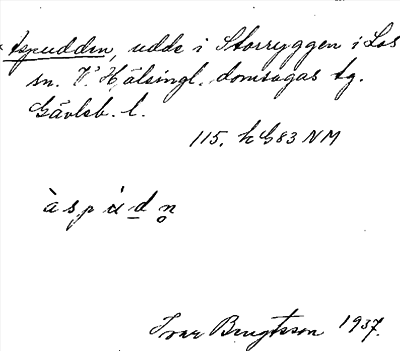 Aspudden, udde i Storryggen i Los
sn. V. Hälsingl. domsagas tg.
Gävleb. l.
115. h G83 NM
à s p ú d n̥
Ivar Bengtsson 1937.